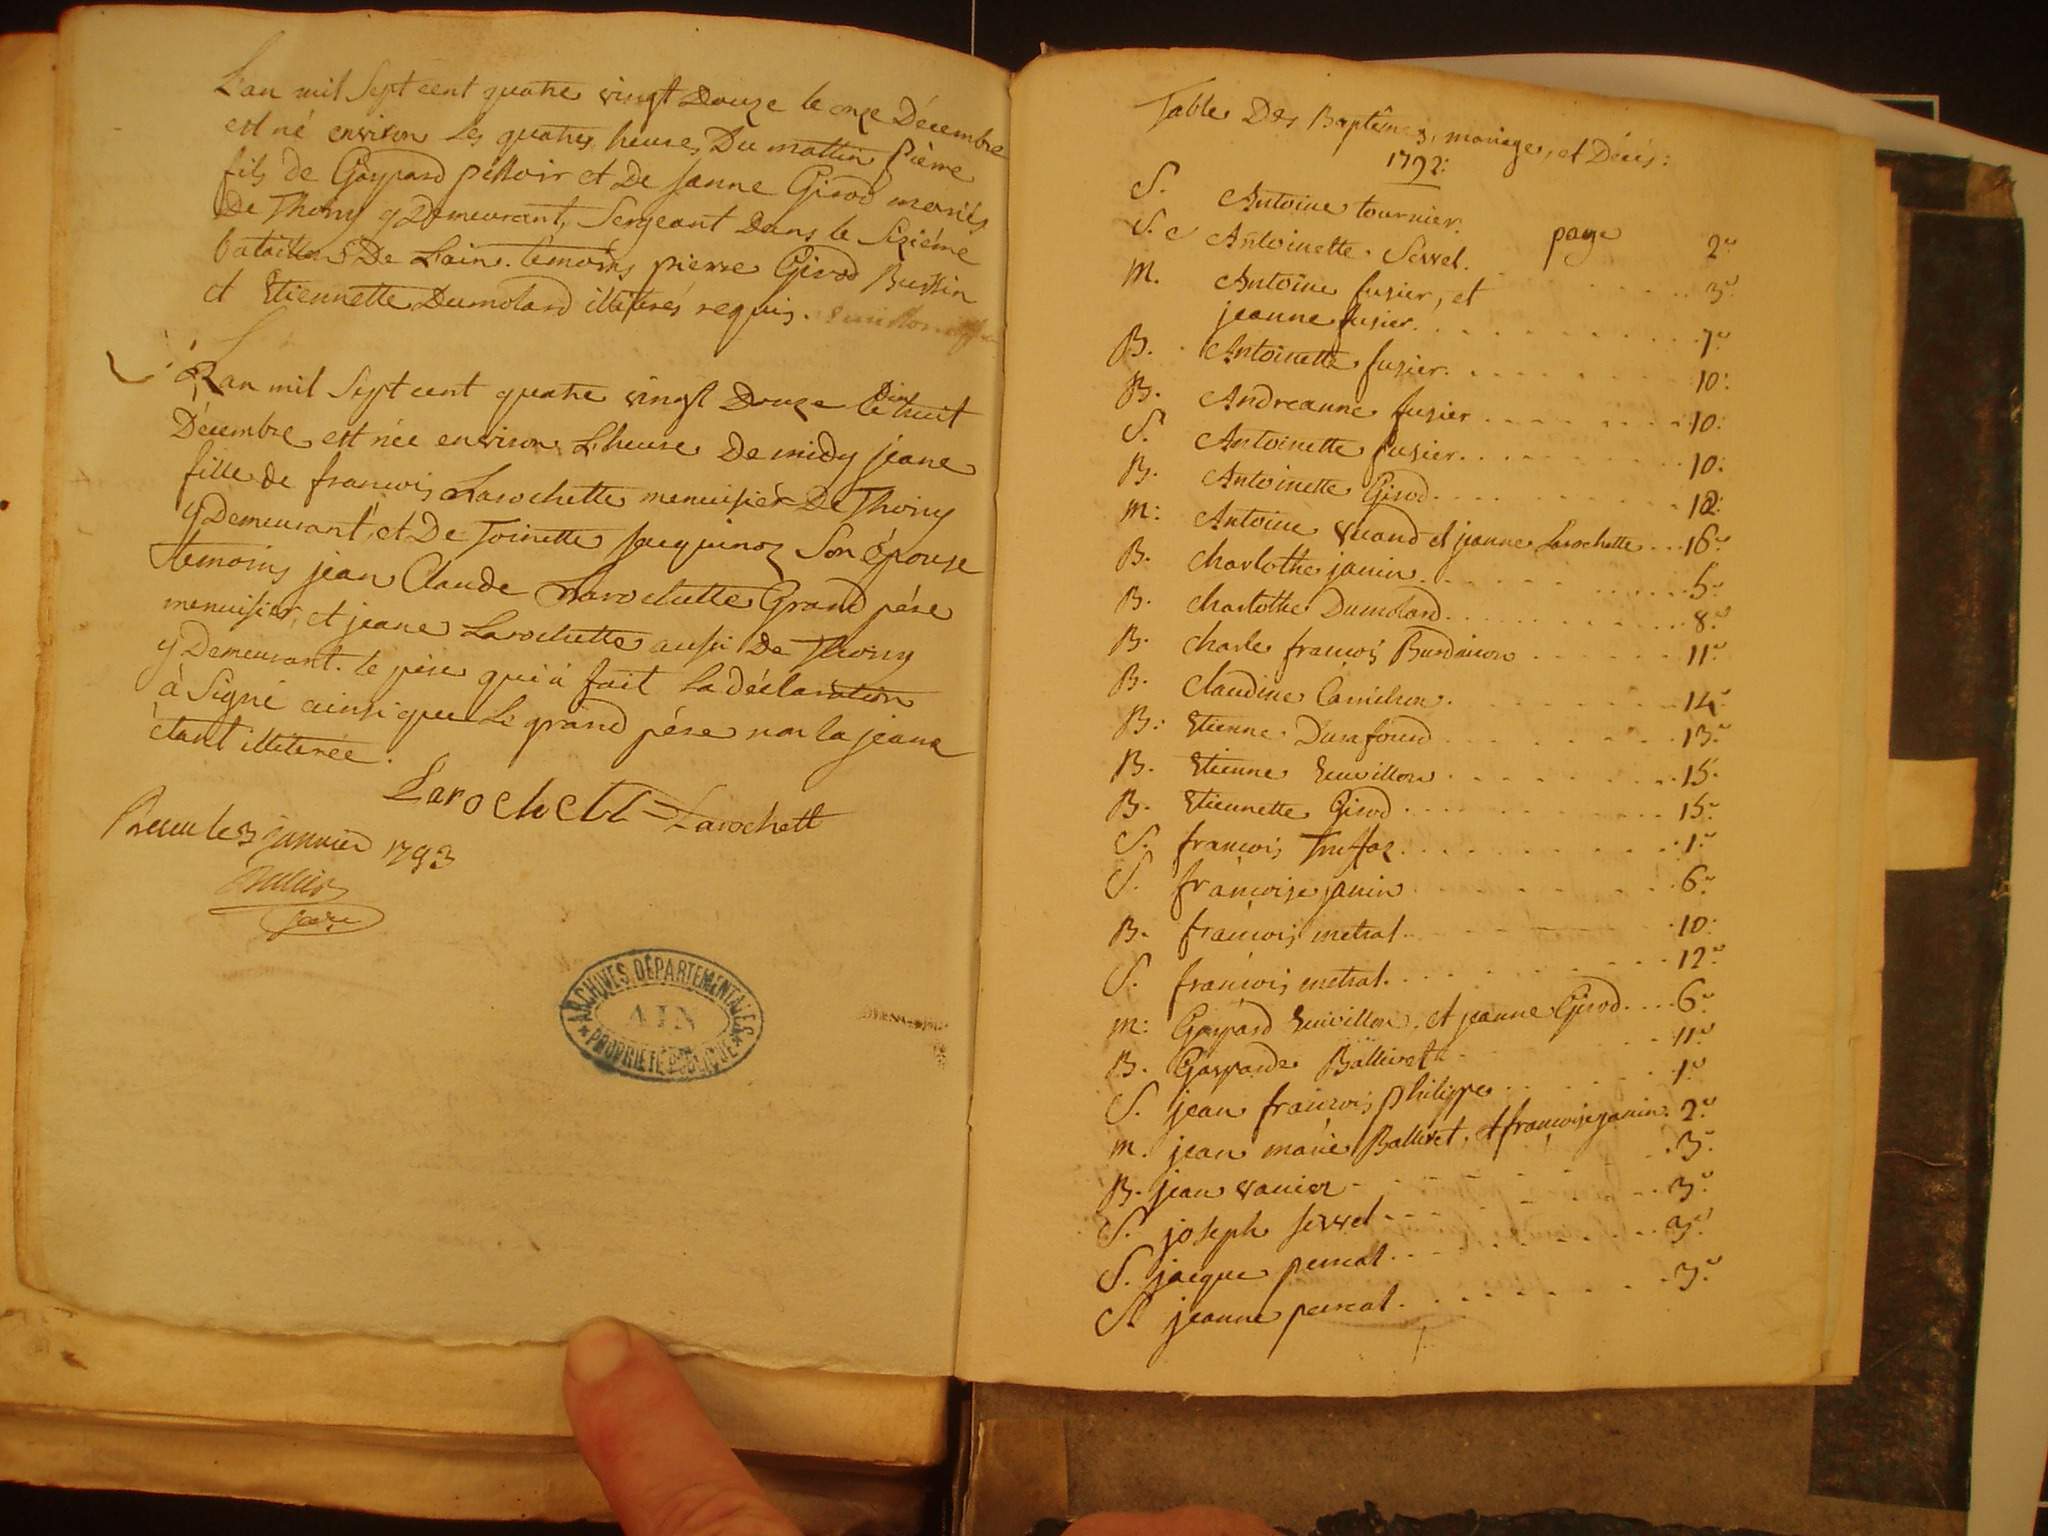 L'an mil Sept cent quatre vingt Douze le onze Décembre
est né environ les quatres heures Du mattin pième
fils de Gaspard pelloir et De Janne Girod mariés
De Thoiry y Demeurant, Sergeant Dans le Sixiéme
bataillon De Lain. témoins pierre Girod Bussin
et Etiennette Dumolard illitirés requis.
L'an mil Sept cent quatre vingt Douze le Dix huit
Décembre est née environ L'heure De midy jeane
fille de francois Larochette menuisier De Thoiry
y Demeurant, et De Toinette Jacquinoz Son épouse
témoins jean Claude Larochette Grand pére
menuisier, et jeane Larochette aussi De Thoiry
y Demeurant. le pére qui à fait La déclaration
à Signé ainsi que Le grand pére non la jeane
étant illitirée.
Larochett Larochett
le 3 janvier 1793
ARCHIVES DÉPARTEMENTALES
AIN
PROPRIÉTÉ PUBLIQUE
Table Des Baptêmes, mariages, et Décès:
1792:
S. Antoine tournier. page 2
S. Antoinette Servel. 3
M. Antoine fusier, et
jeanne fusier. 7
B. Antoinette fusier. 10:
B. Andreanne fusier 10:
S. Antoinette fusier. 10:
B. Antoinette Girod. 12:
M: Antoine et jeanne Larochette 16
B. Charlothe janin. 5
B. Charlothe Dumolard. 8
B. Charle françois Burdairon 11
B. Claudine 14
B: Etienne Durafourd 13
B. Etienne Emvillon 15
B. Etiennette Girod 15
S. francois Truffaz. 1
S. françoise janin 6
B. francois metral. 10:
S. francois metral. 12
M: Gaspard Emvillon, et jeanne Girod. 6
B. Gasparde Ballivet 11
S. jean francois philippe 1
M. jean marie Ballivet, et francoise janin. 2
B. jean vanier 3
S. joseph Servel 3
S. jacque perreal. 3
S. jeanne perreal. 3